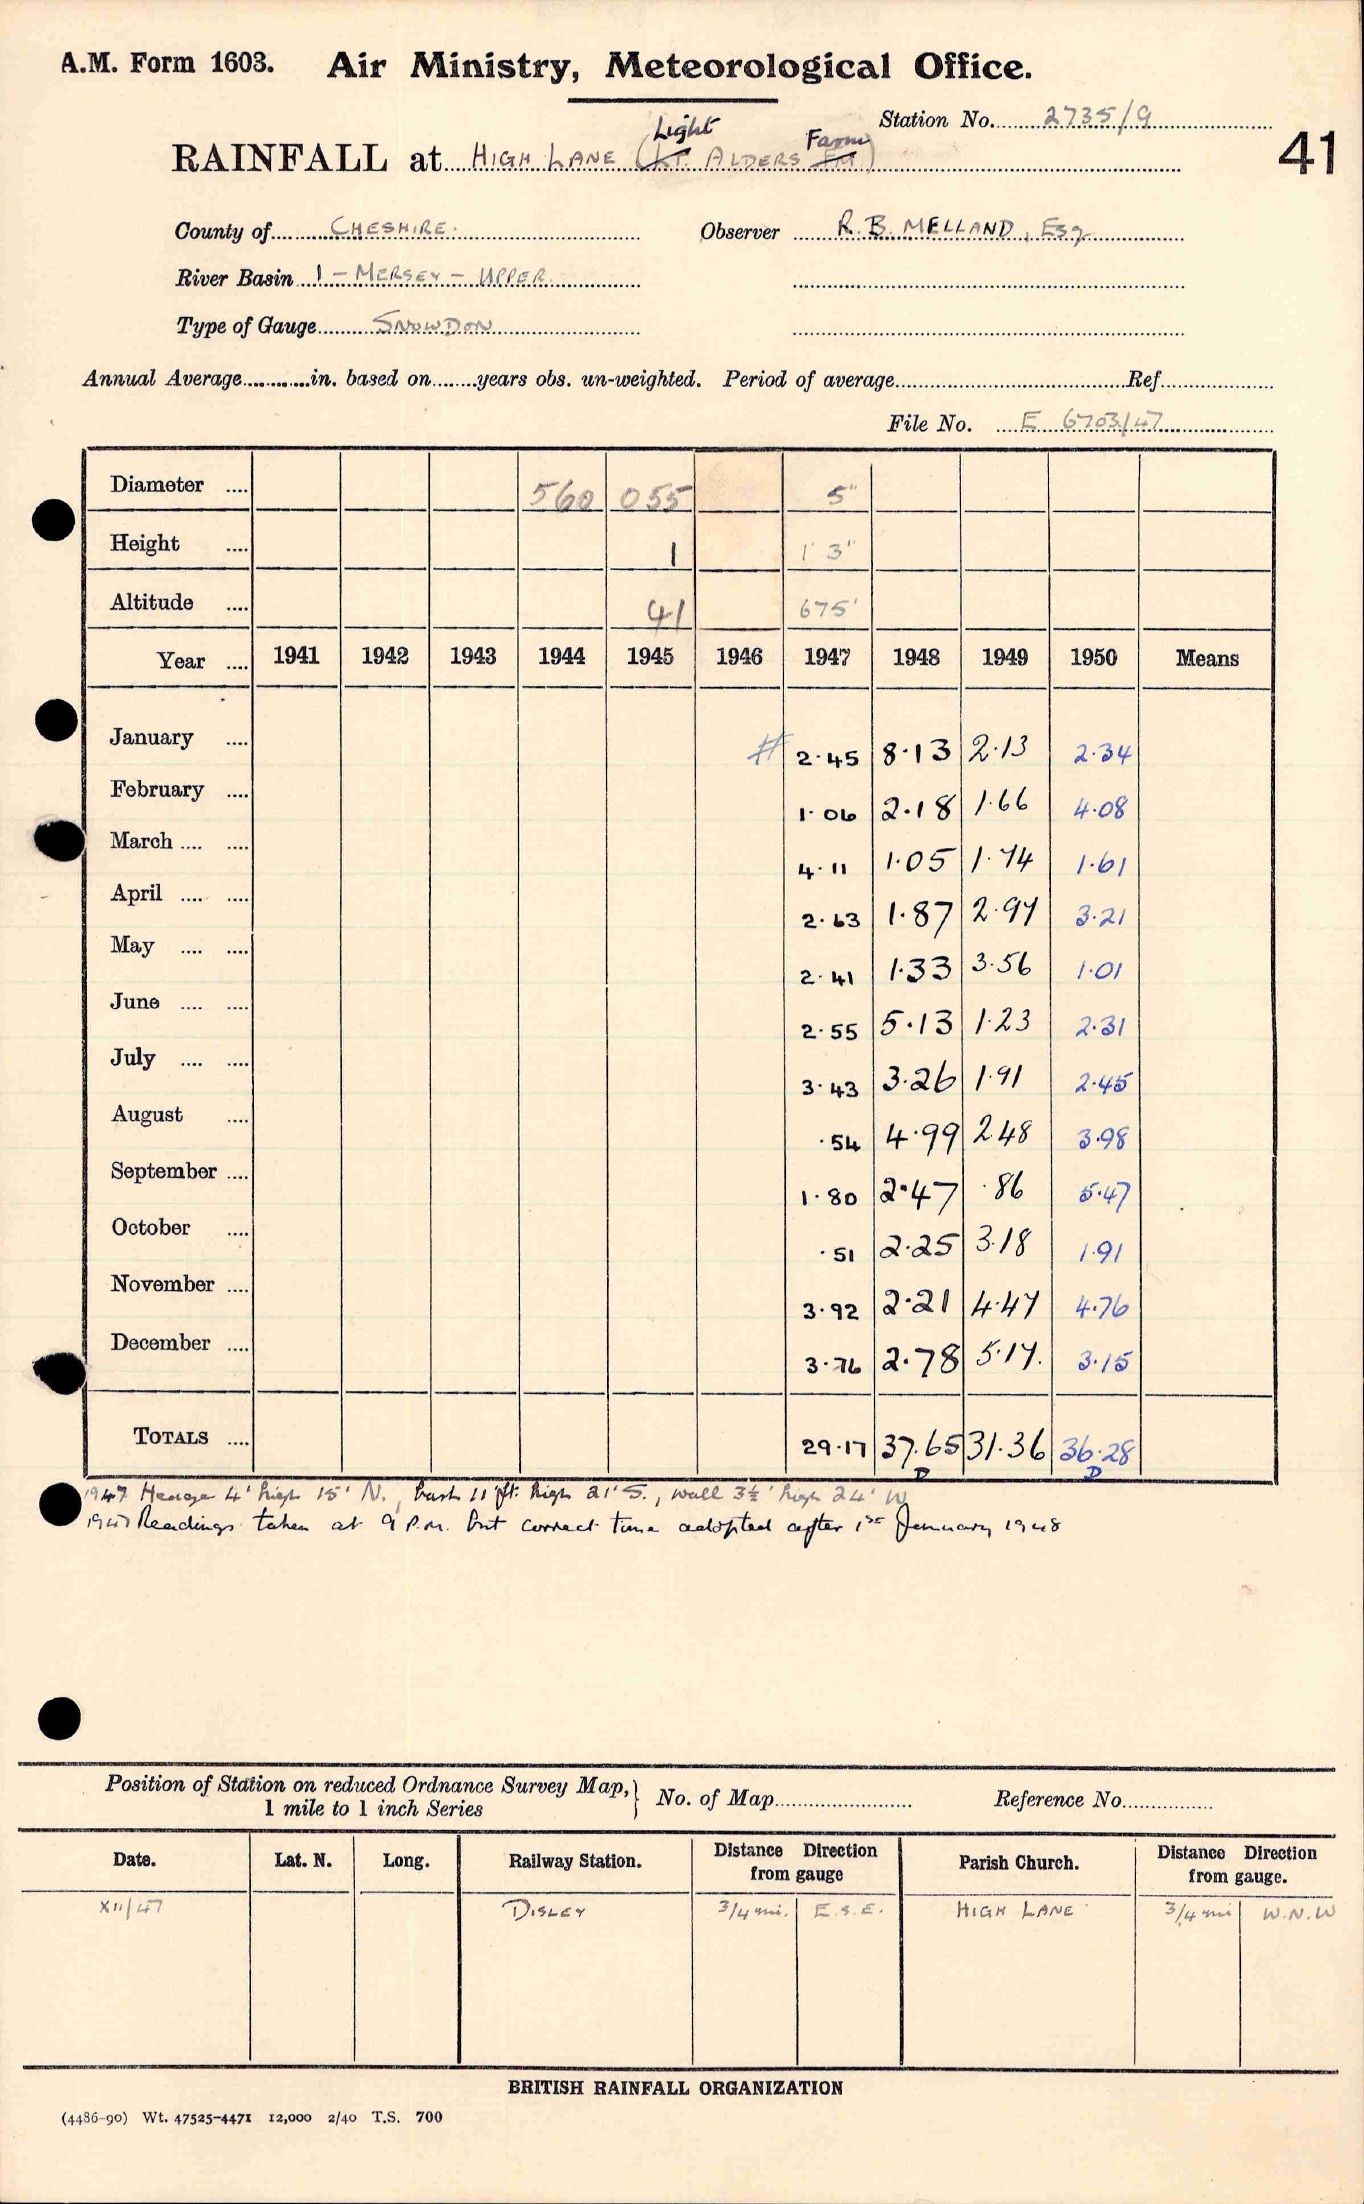 A.M. Form 1603. Air Ministry, Meteorological Office.
Station No. 2735/9
41
Light Farm
RAINFALL at HIGH LANE (LT. ALDERS FM.)
County of CHESHIRE. Observer R. B. MELLAND, Esq
River Basin 1 - MERSEY - UPPER
Type of Gauge SNOWDON
Annual Average............in. based on........years obs. un-weighted. Period of average........Ref........
File No. E 6703/47
Diameter .... 560 055 5"
Height .... 1 1' 3"
Altitude .... 41 675'
Year .... 1941 1942 1943 1944 1945 1946 1947 1948 1949 1950 Means
January .... # 2.45 8.13 2.13 2.34
February .... 1.06 2.18 1.66 4.08
March .... .... 4.11 1.05 1.74 1.61
April .... .... 2.63 1.87 2.97 3.21
May .... .... 2.41 1.33 3.56 1.01
June .... .... 2.55 5.13 1.23 2.31
July .... .... 3.43 3.26 1.91 2.45
August .... .54 4.99 2.48 3.98
September .... 1.80 2.47 .86 5.47
October .... .51 2.25 3.18 1.91
November .... 3.92 2.21 4.47 4.76
December .... 3.76 2.78 5.17. 3.15
TOTALS .... 29.17 37.65 31.36 36.28
D D
1947 Hedge 4' high 15' N., bush 11 ft. high 21' S., wall 3½' high 24' W
1947 Readings taken at 9 P.M. but correct time adopted after 1st January 1948
Position of Station on reduced Ordnance Survey Map, } No. of Map........ Reference No........
1 mile to 1 inch Series
Date. Lat. N. Long. Railway Station. Distance Direction from gauge Parish Church. Distance Direction from gauge.
XII/47 DISLEY 3/4 mi. E.S.E. HIGH LANE 3/4 mi W.N.W
BRITISH RAINFALL ORGANIZATION
(4486-90) Wt. 47525-4471 12,000 2/40 T.S. 700